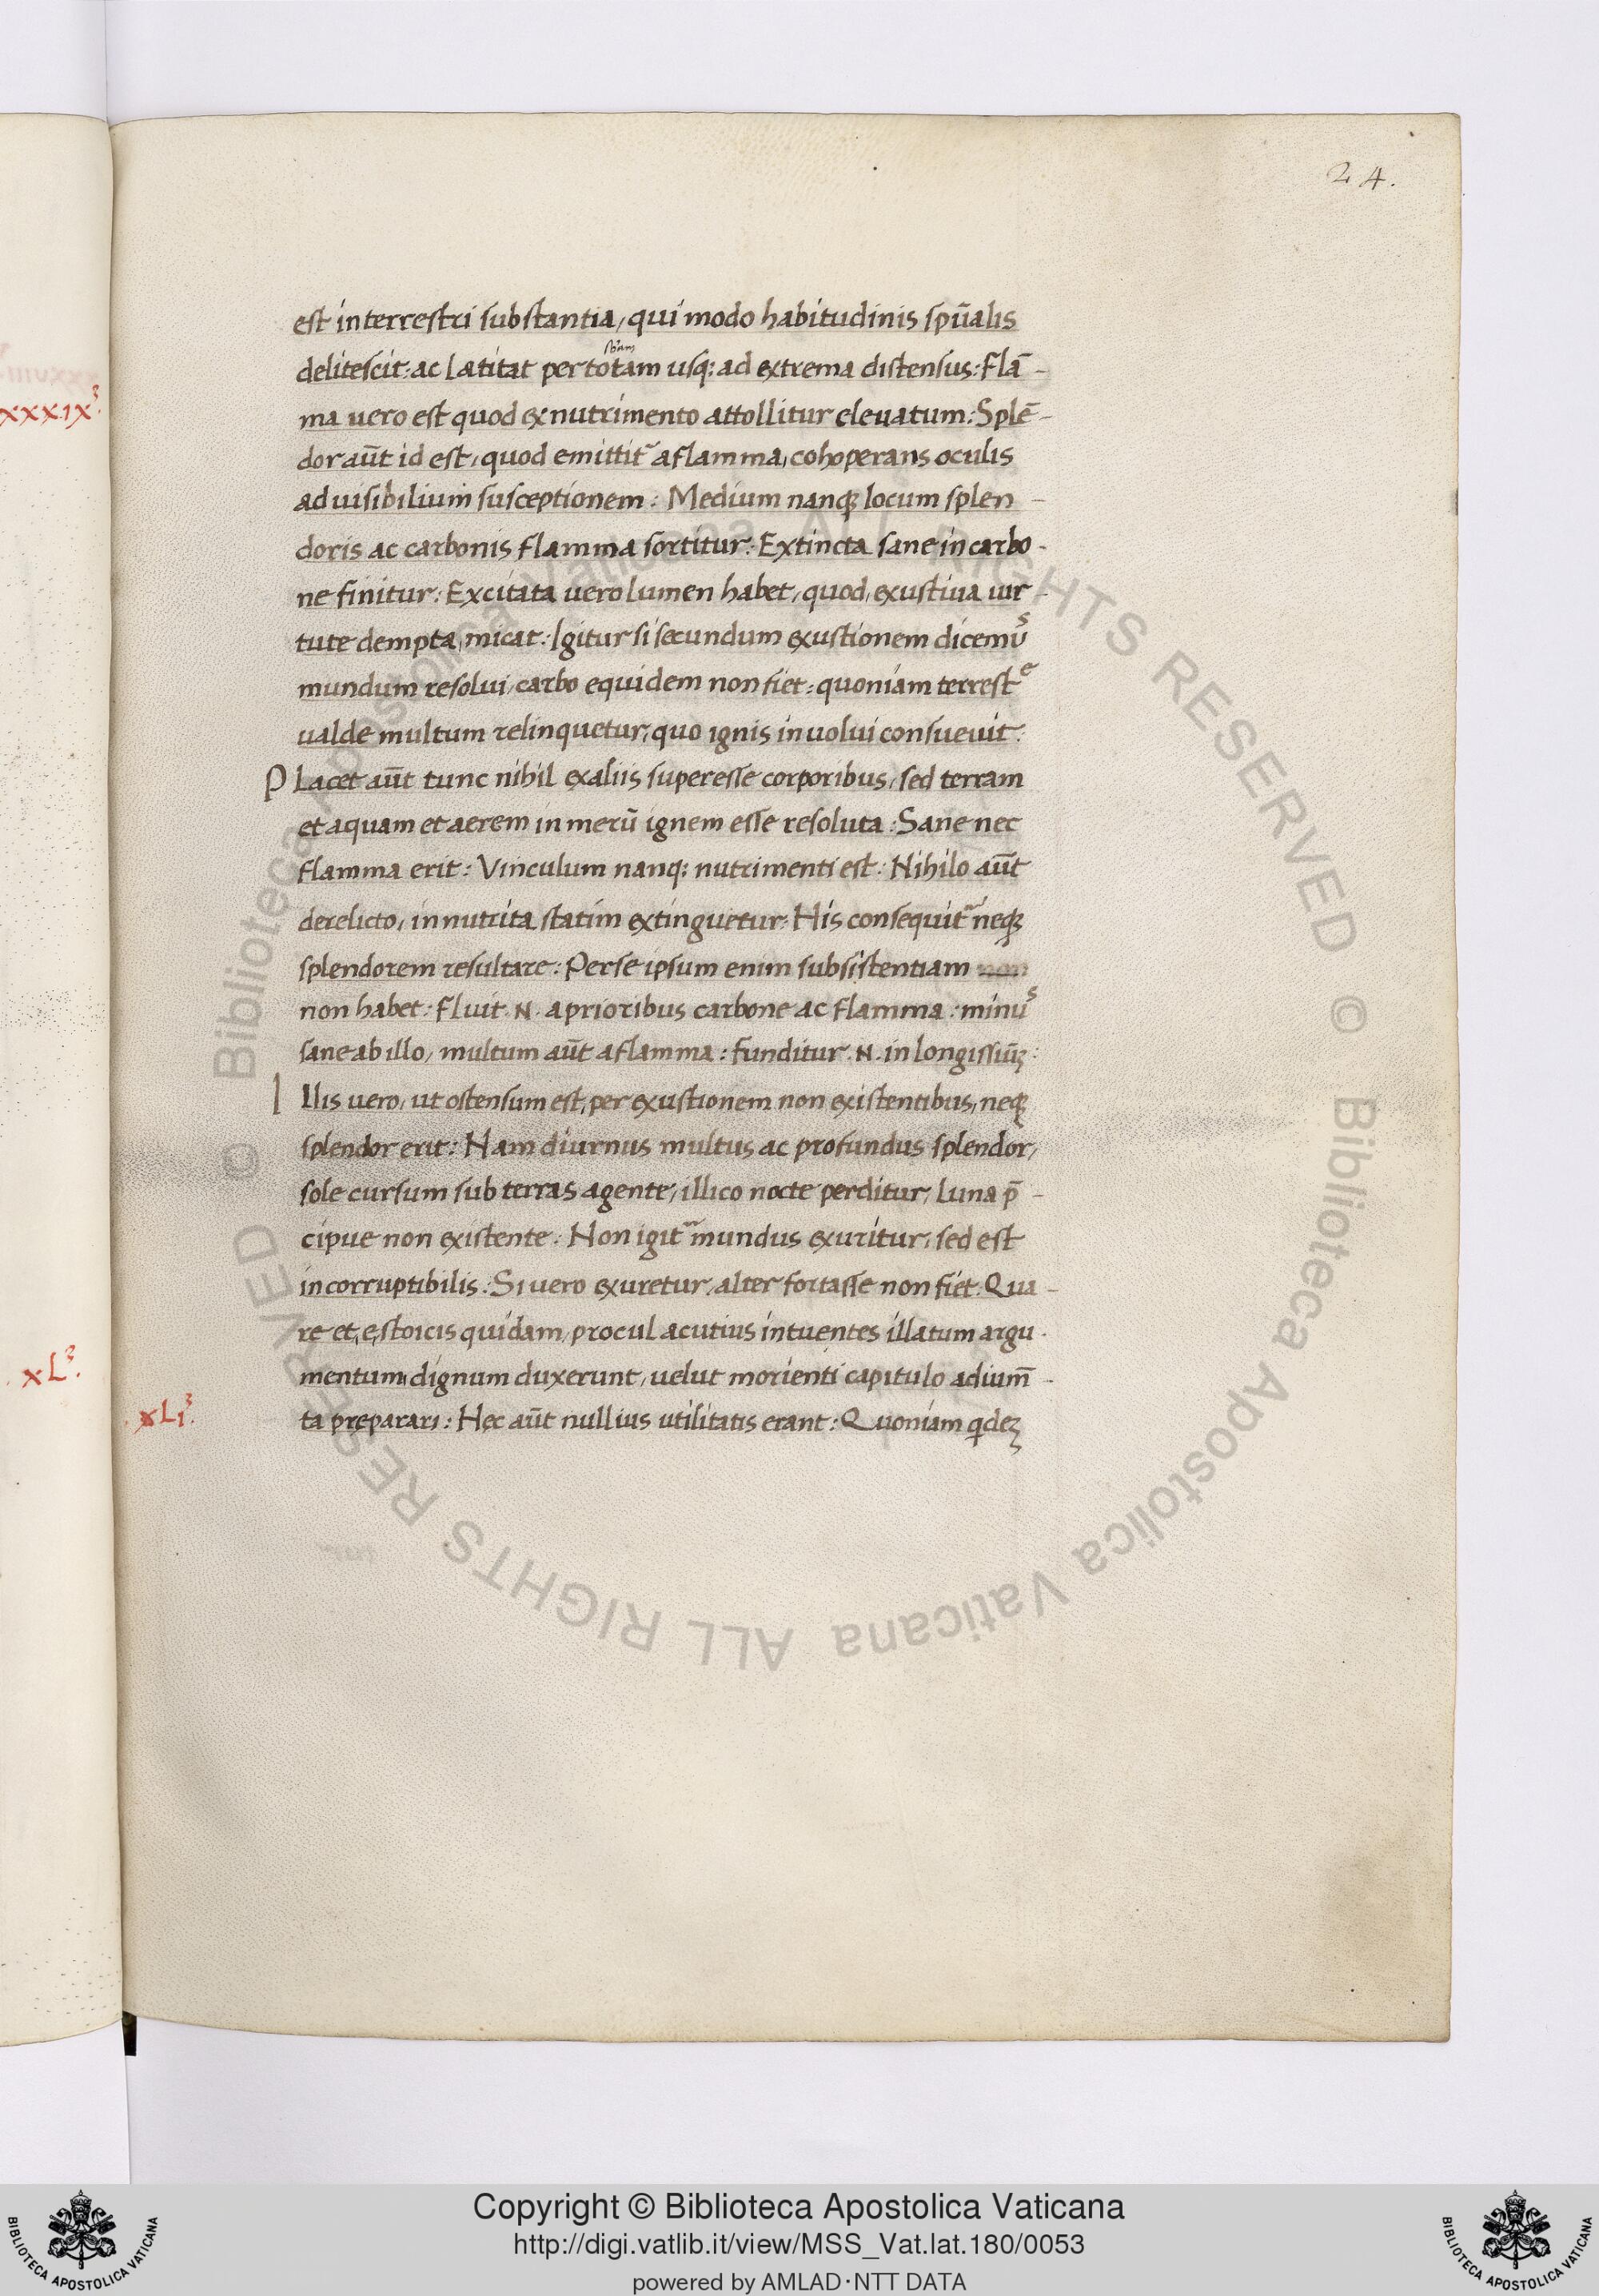 24.
est in terrestri substantia, qui modo habitudinis spūalis
delitescit: ac latitat per totam usq: ad extrema distensus: Flā-
ma vero est quod ex nutrimento attollitur elevatum: Splē-
dor aūt id est, quod emittit᷑ a flamma, cohoperans oculis
ad visibilium susceptionem: Medium nanq locum splen-
doris ac carbonis flamma sortitur: Extincta sane in carbo-
ne finitur: Excitata vero lumen habet, quod, exustiva vir-
tute dempta, micat: Igitur si secundum exustionem dicemꝰ
mundum resolvi, carbo equidem non fiet: quoniam terrestᵉ
valde multum relinquetur, quo ignis involvi consuevit:
Placet aūt tunc nihil ex aliis superesse corporibus, sed terram
et aquam et aerem in merū ignem esse resoluta: Sane nec
flamma erit: Vinculum nanq: nutrimenti est: Nihilo aūt
derelicto, innutrita statim extinguetur: His consequit᷑ neq
splendorem resultare: Per se ipsum enim subsistentiam non
non habet: Fluit .N. a prioribus carbone ac flamma: minꝰ
sane ab illo, multum aūt a flamma: funditur .N. in longissiūʒ:
Illis vero, ut ostensum est, per exustionem non existentibus, neq
splendor erit: Nam diurnus multus ac profundus splendor,
sole cursum sub terras agente, illico nocte perditur, Luna p̄-
cipue non existente: Non igit᷑ mundus exuritur, sed est
incorruptibilis: Si vero exuretur, alter fortasse non fiet: Qua-
re et, e, stoicis quidam, procul acutius intuentes illatum argu-
mentum, dignum duxerunt, velut morienti capitulo adium̄-
ta preparari: Hec aūt nullius utilitatis erant: Quoniam qdeʒ
xxxix³.
xL³.
xLi³.
Copyright © Biblioteca Apostolica Vaticana
http://digi.vatlib.it/view/MSS_Vat.lat.180/0053
powered by AMLAD·NTT DATA
© Biblioteca Apostolica Vaticana ALL RIGHTS RESERVED © Biblioteca Apostolica Vaticana ALL RIGHTS RESERVED
BIBLIOTECA APOSTOLICA VATICANA
BIBLIOTECA APOSTOLICA VATICANA